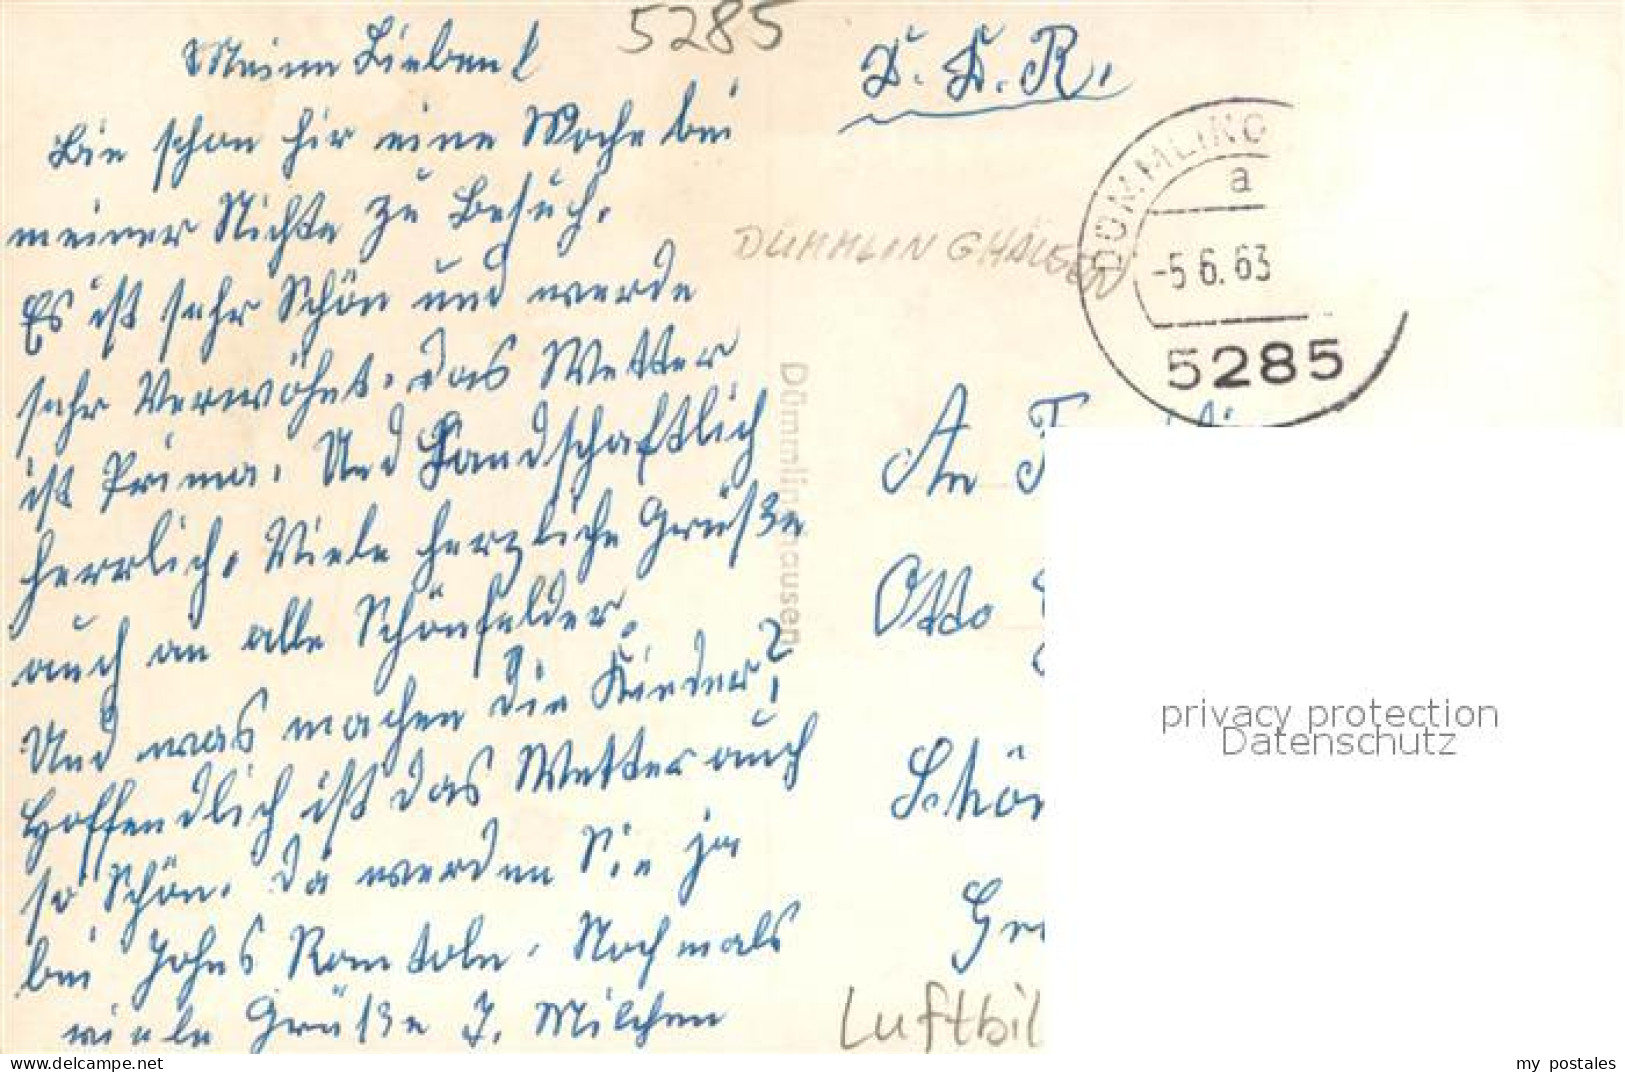 5285
Meine Lieben!
Bin schon hir eine Woche bei
meiner Nichte zu Besuch.
Es ist sehr Schön und werde
sehr Verwöhnt. das Wetter
ist Prima. Und Landschaftlich
herrlich. Viele herzliche Grüße
auch an alle Schönfelder.
Und was machen die Kinder?
Hoffendlich ist das Wetter auch
so Schön. Da werden Sie ja
bei Johns Nochmals
viele Grüße J. Milchen
D. D. R.
DÜMMLINGHAUSEN
DÜMMLING
a
-5.6.63
5285
Dümmlinghausen
An
Otto
Schön
Luftbil
privacy protection
Datenschutz
my postales